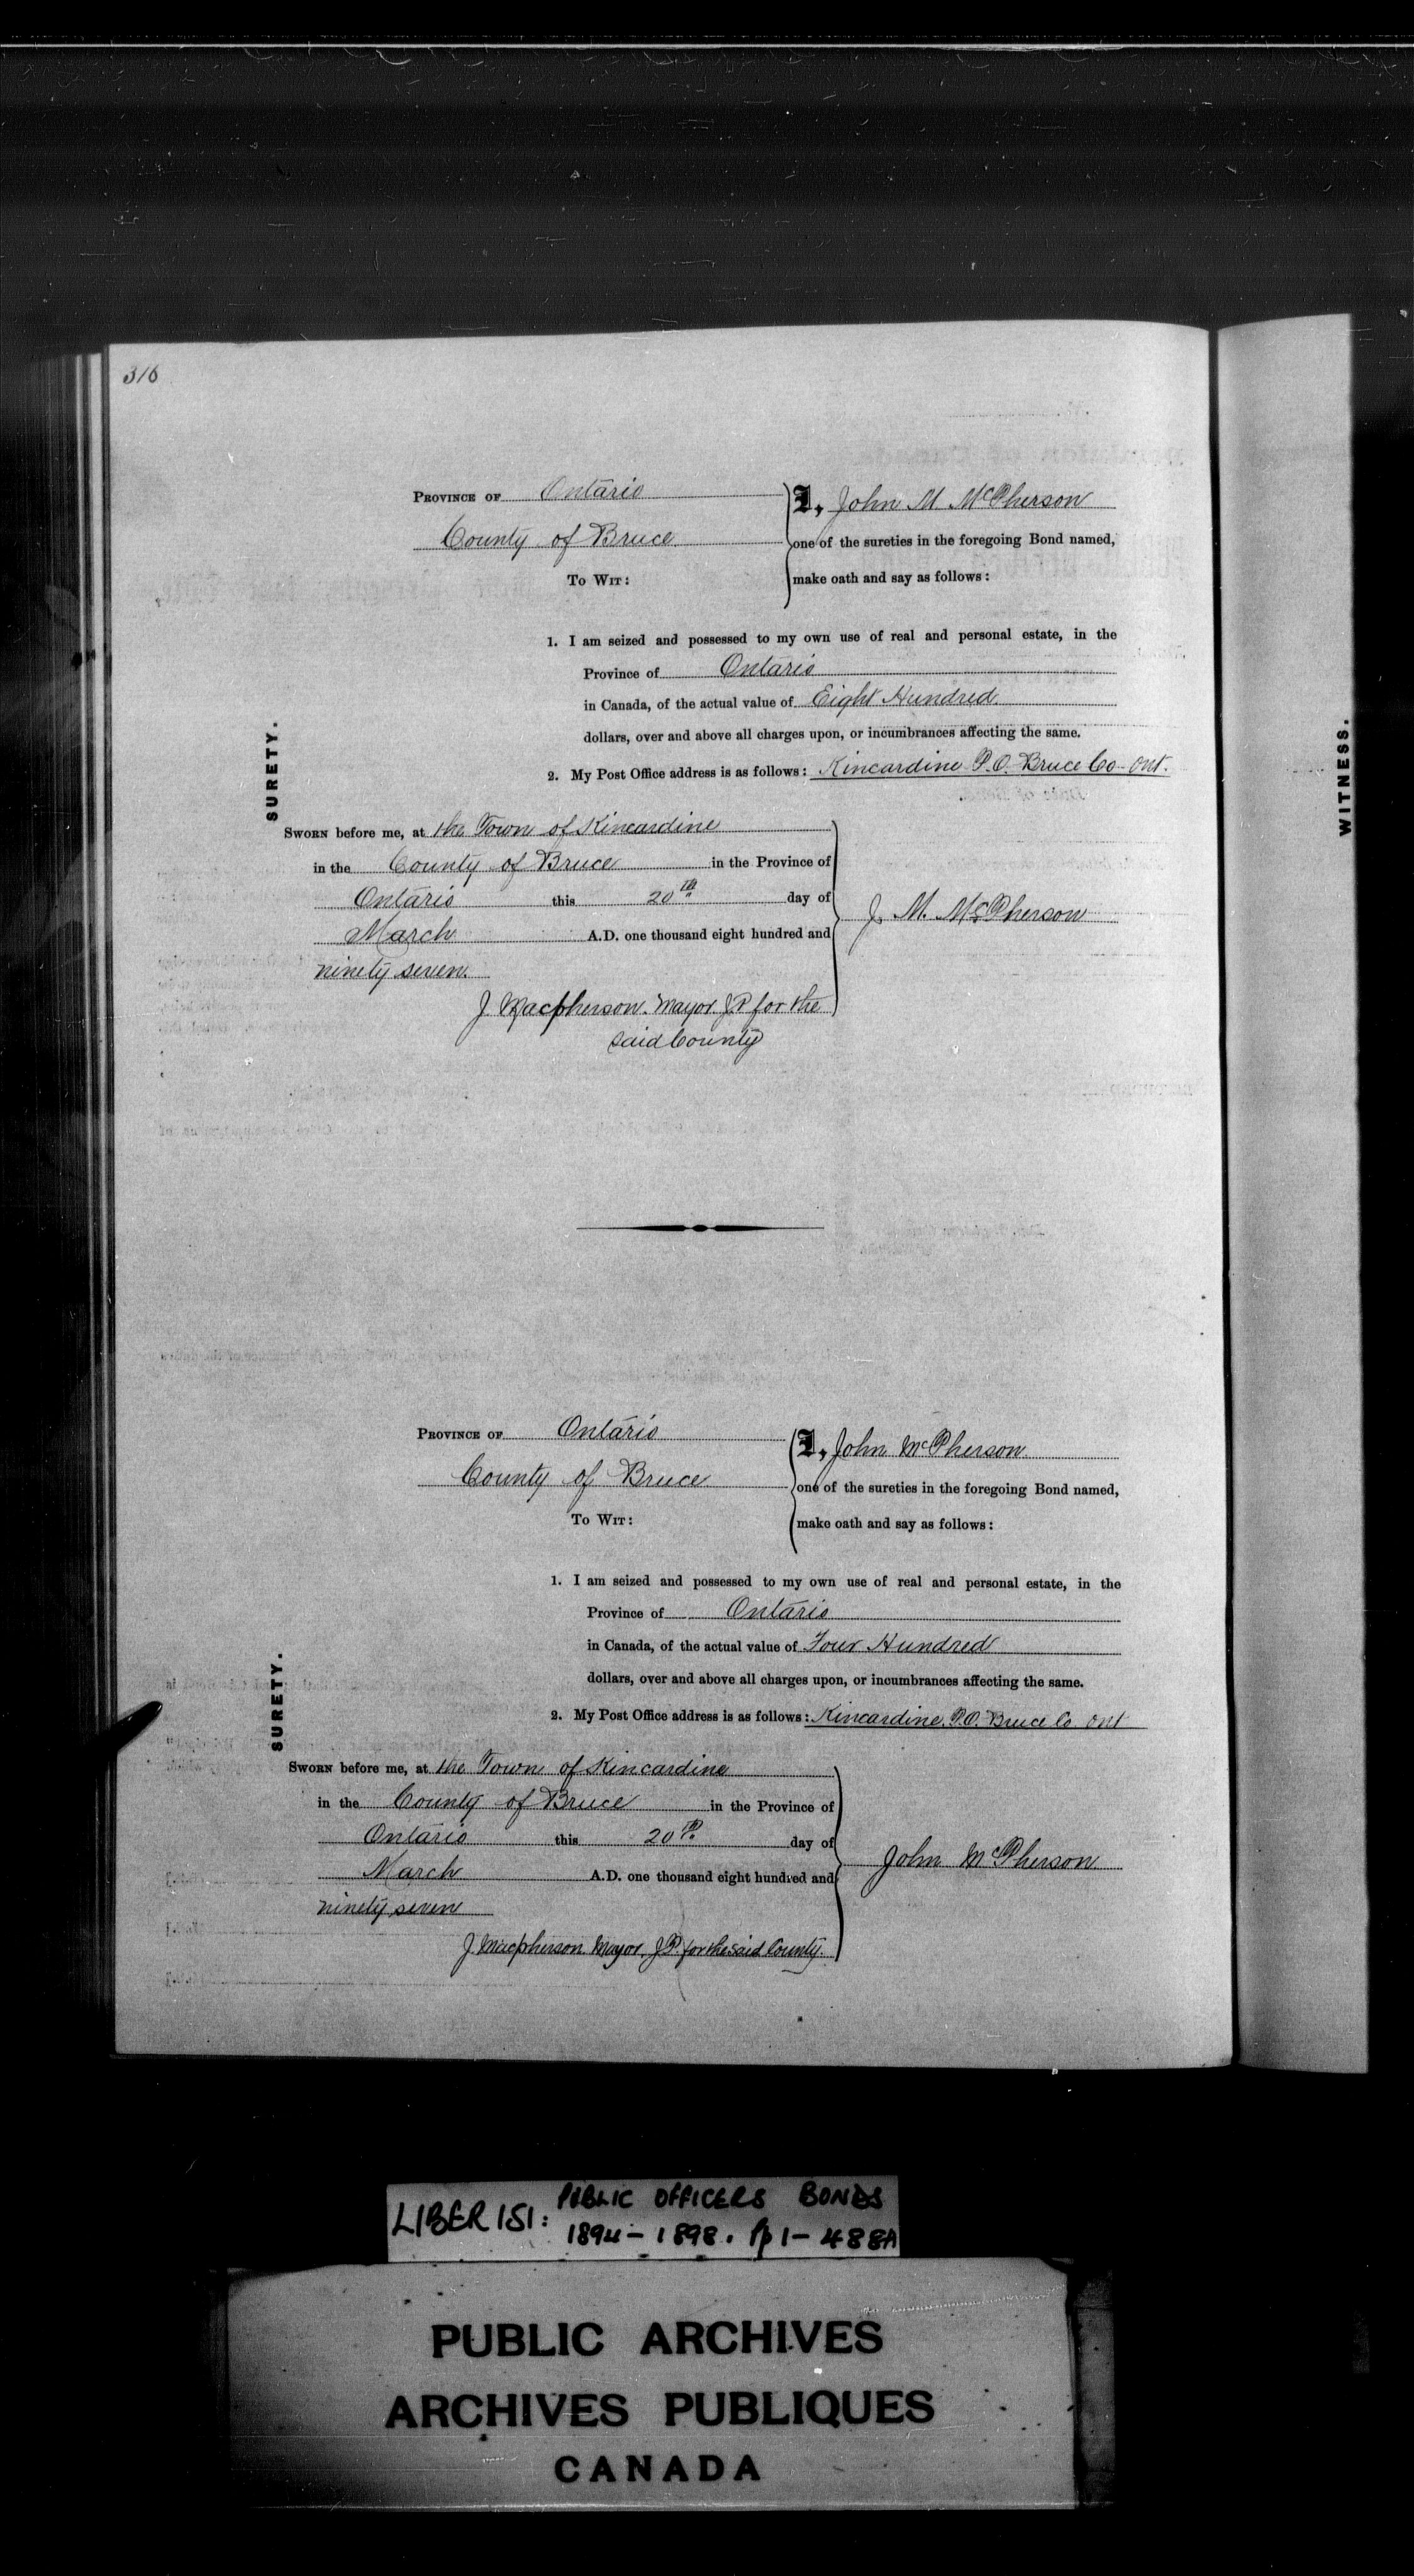 316
PROVINCE OF Ontario
County of Bruce
TO WIT:
I, John M. McPherson
one of the sureties in the foregoing Bond named,
make oath and say as follows:
1. I am seized and possessed to my own use of real and personal estate, in the
Province of Ontario
in Canada, of the actual value of Eight Hundred
dollars, over and above all charges upon, or incumbrances affecting the same.
2. My Post Office address is as follows: Kincardine P.O. Bruce Co Ont.
SURETY.
SWORN before me, at the Town of Kincardine
in the County of Bruce in the Province of
Ontario this 20th day of
March A.D. one thousand eight hundred and
ninety seven.
J. Macpherson. Mayor J.P for the
said County
J. M. McPherson
PROVINCE OF Ontario
County of Bruce
TO WIT:
I, John McPherson
one of the sureties in the foregoing Bond named,
make oath and say as follows:
1. I am seized and possessed to my own use of real and personal estate, in the
Province of Ontario
in Canada, of the actual value of Four Hundred
dollars, over and above all charges upon, or incumbrances affecting the same.
2. My Post Office address is as follows: Kincardine. P.O. Bruce Co. Ont
SURETY.
SWORN before me, at the Town of Kincardine
in the County of Bruce in the Province of
Ontario this 20th day of
March A.D. one thousand eight hundred and
ninety seven
J. Macpherson. Mayor. J.P. for the said County.
John McPherson
WITNESS.
LIBER 151: PUBLIC OFFICERS BONDS
1894 - 1898. Pp 1 - 488A
PUBLIC ARCHIVES
ARCHIVES PUBLIQUES
CANADA